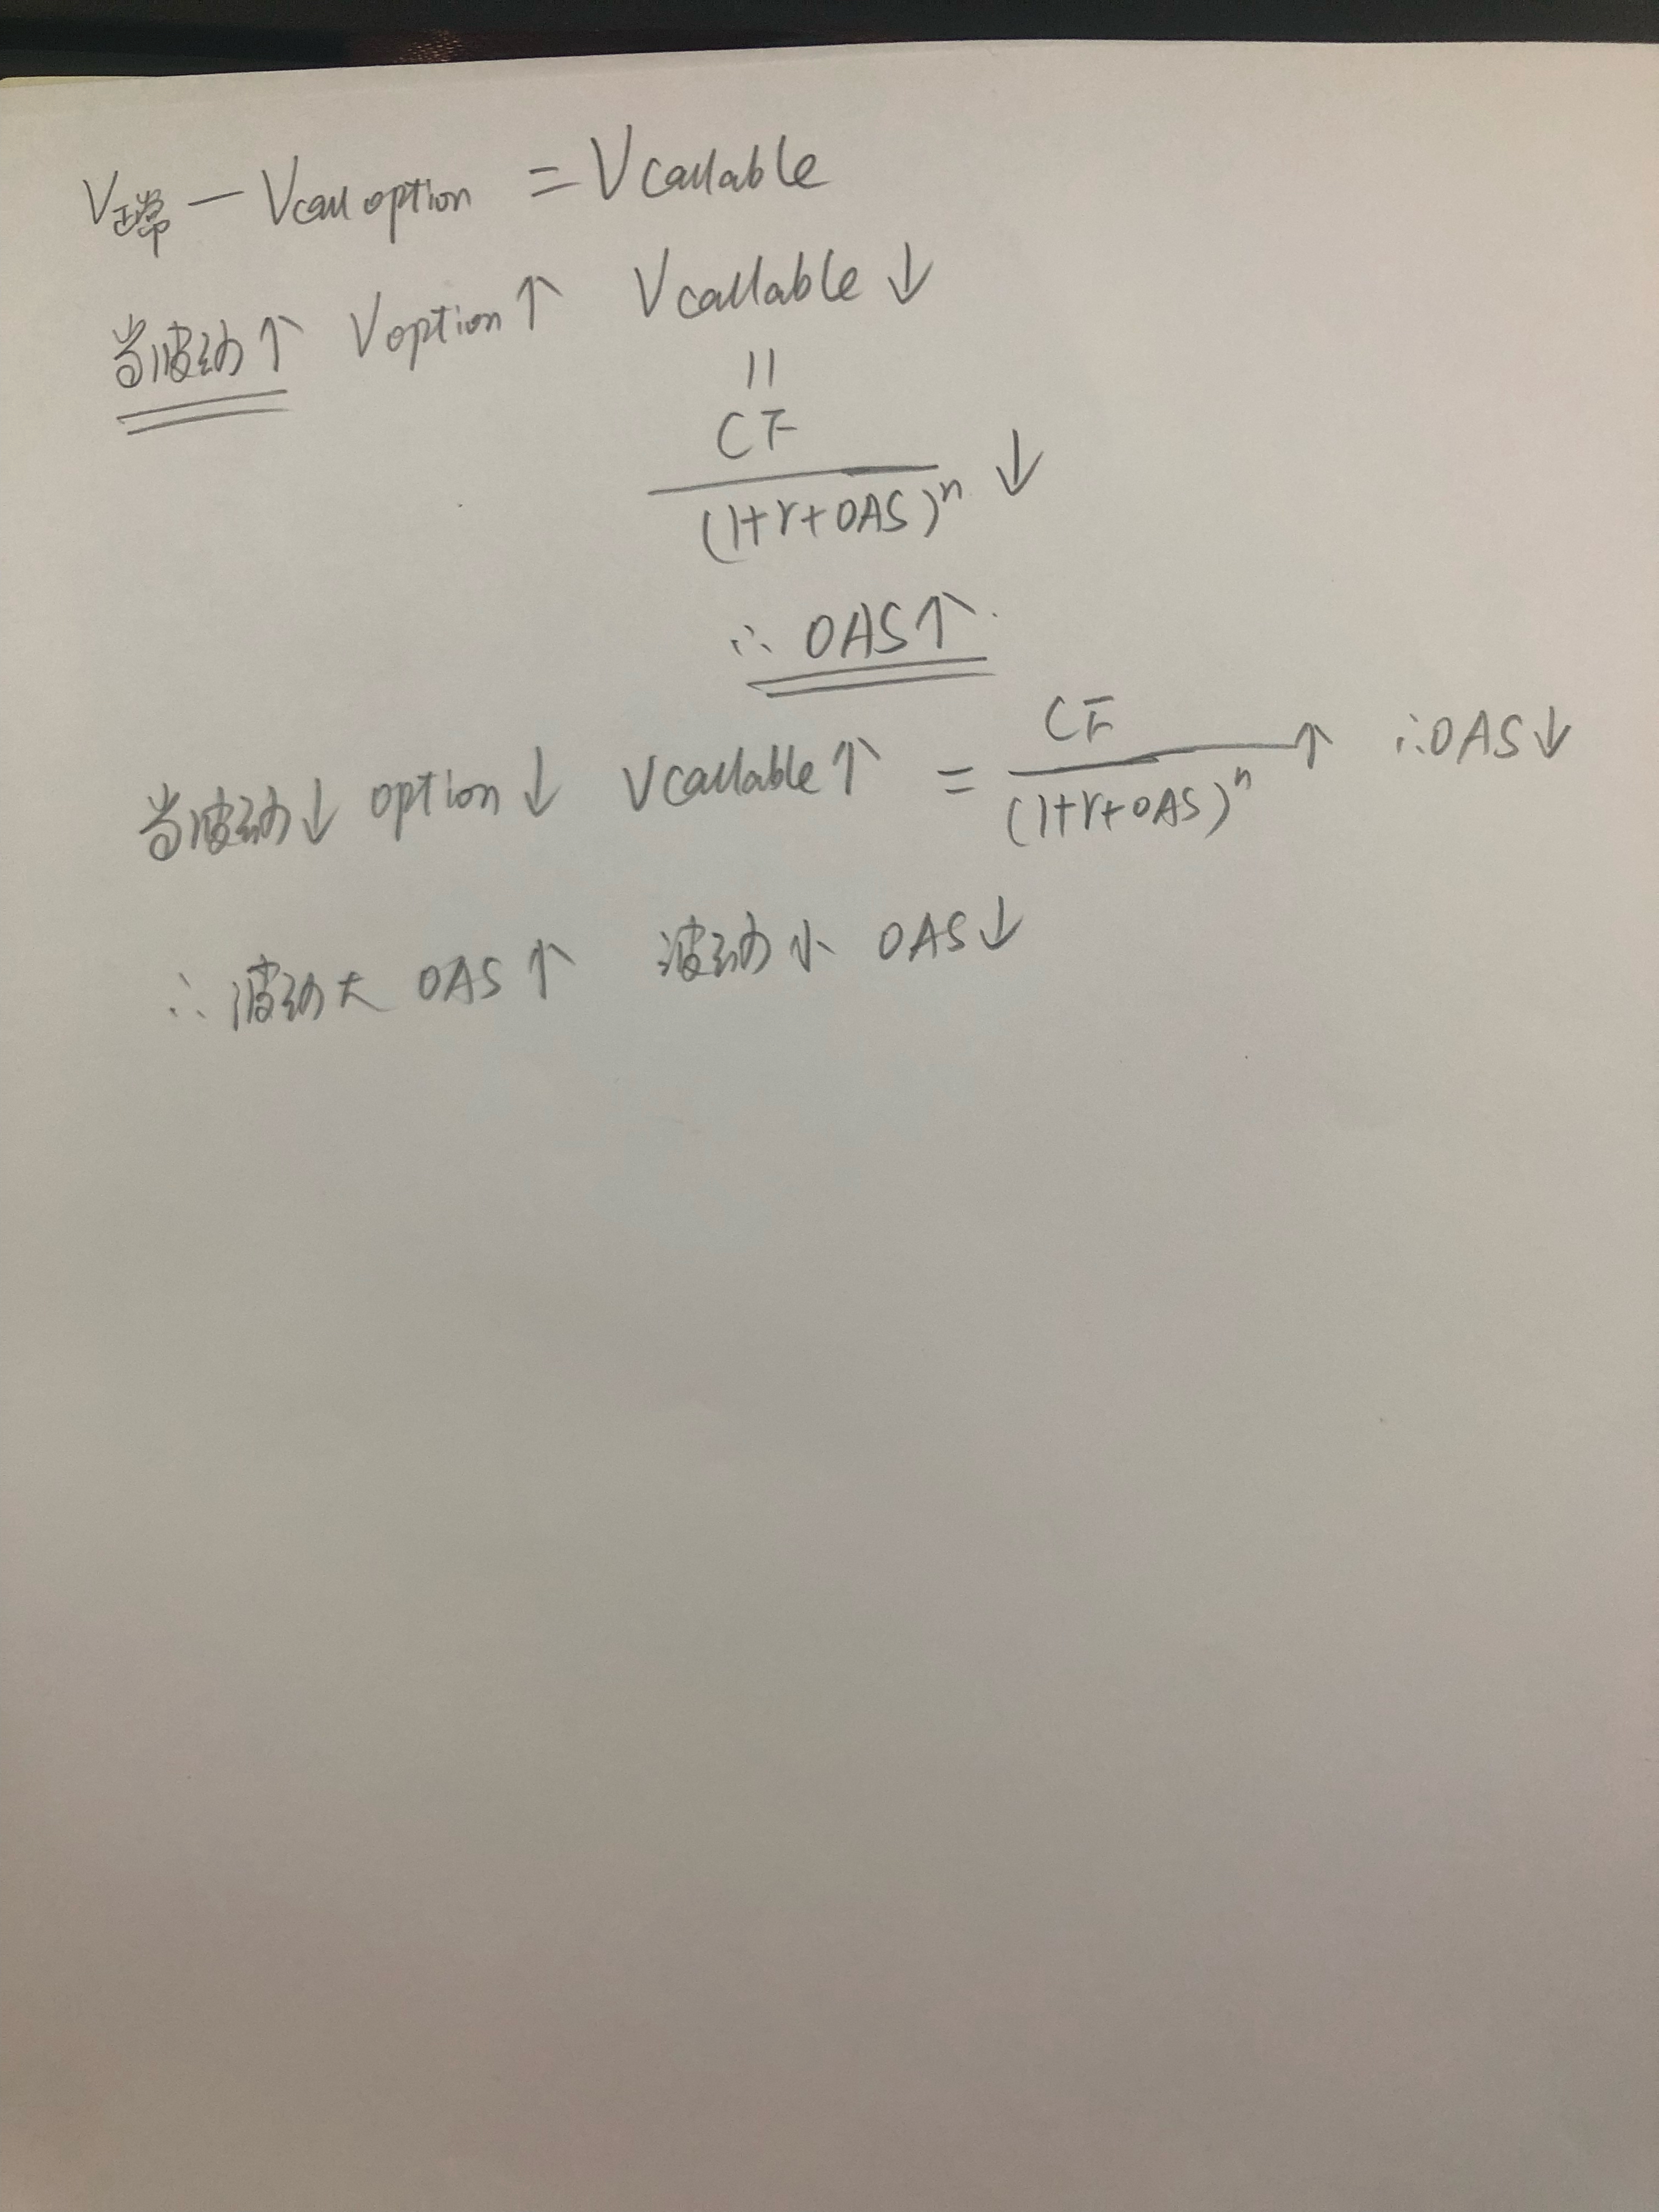 V正常 - Vcall option = Vcallable
当波动↑ Voption↑ Vcallable↓
||
CF
(1+r+OAS)ⁿ ↓
∴ OAS↑
当波动↓ option↓ Vcallable↑ = CF/(1+r+OAS)ⁿ ↑ ∴OAS↓
∴ 波动大 OAS↑ 波动小 OAS↓